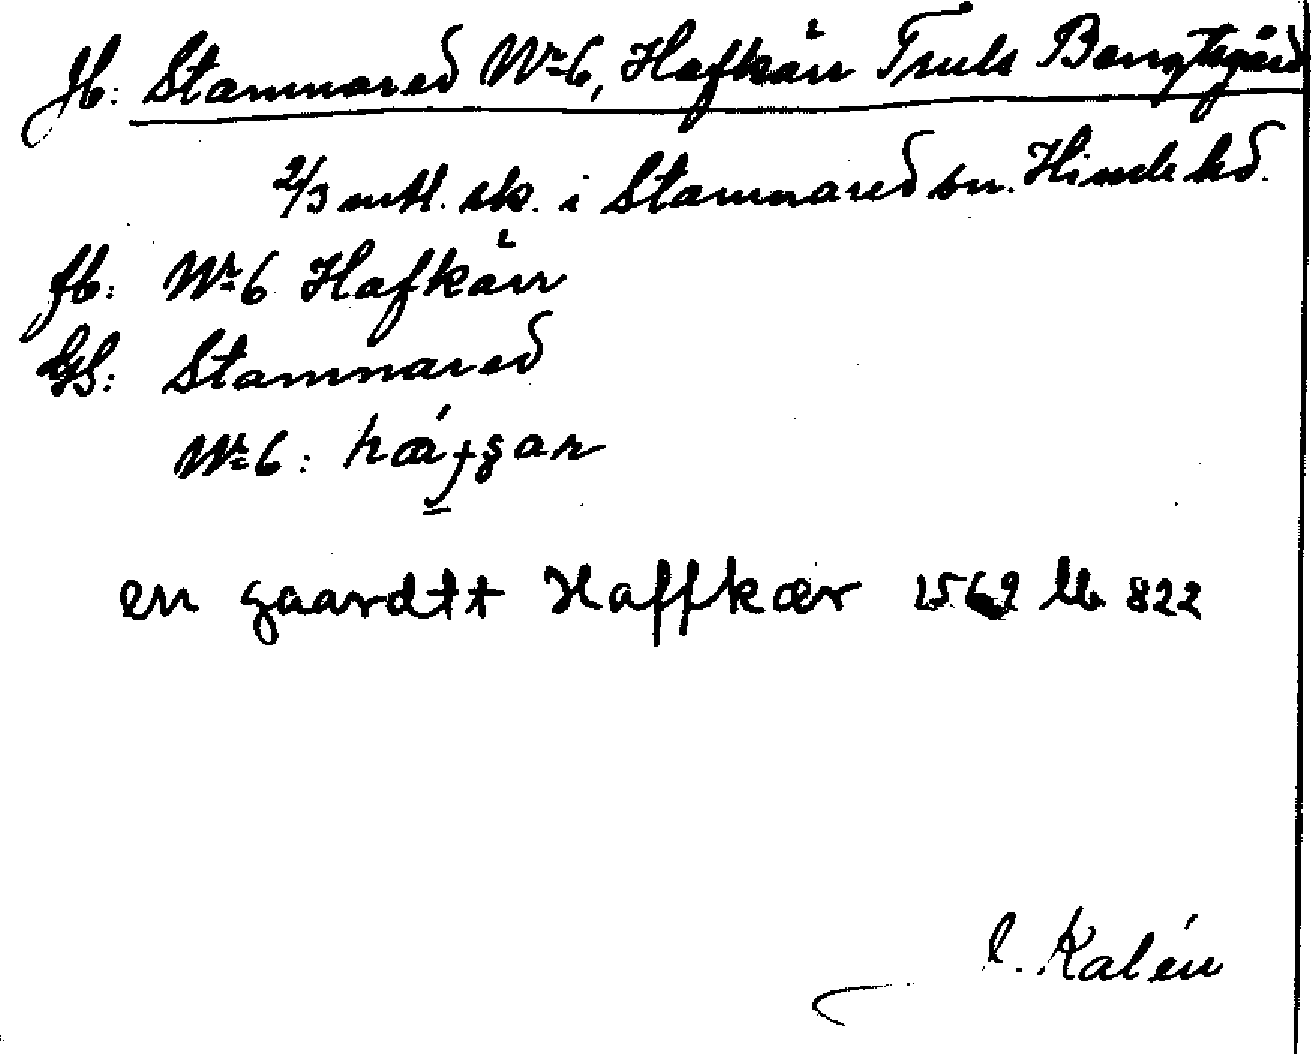 Jb: Stamnared Nr 6, Hafkärr Truls Bengtsgård
2/3 mtl. sk. i Stamnared sn. Himle hd.
fb: Nr 6 Hafkärr
GS: Stamnared
Nr 6:
en gaardtt Haffkær 1569 Lb 822
C. Kalén